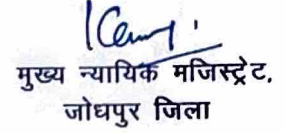 मुख्य न्यायिक मजिस्ट्रेट,
जोधपुर जिला